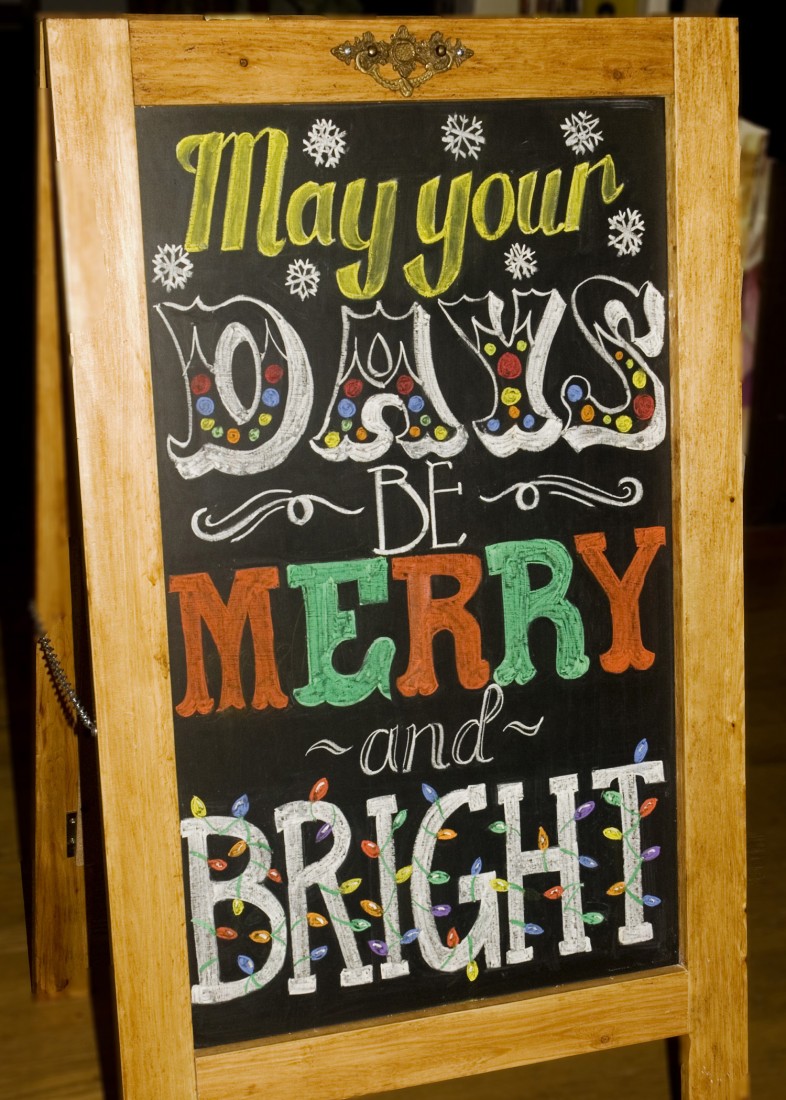 May your
DAYS
BE
MERRY
~and~
BRIGHT